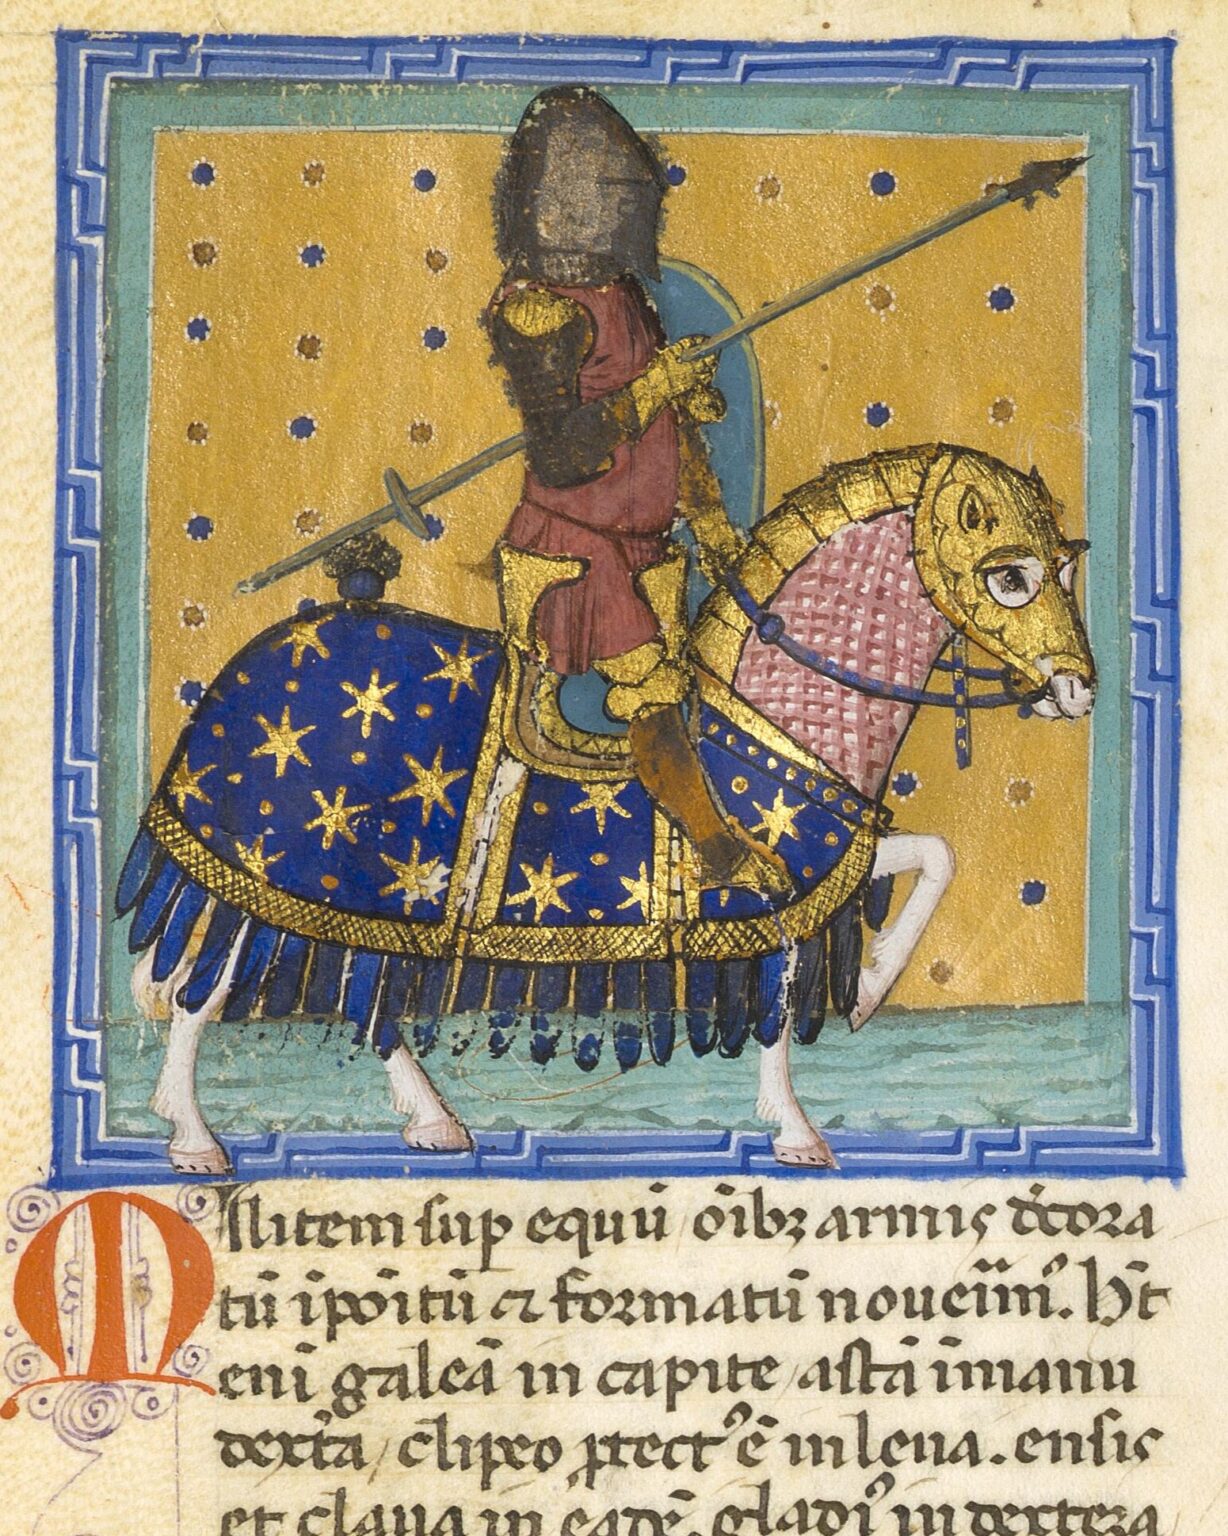 Militem sup equū oībꝫ armis d̾cora
tū īpoītū ⁊ formatū noueiīm᾽. Hn̄t
enī galeā in capite / astā ī manu
dext̾a / clipeo ꝓtect᾽ ē in leua. ensis
et claua in eadē. gladi᾽ in dextera